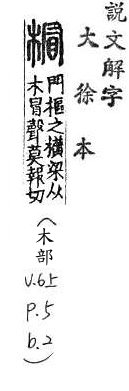 說文解字
大徐本
㮘
門樞之橫梁从
木冒聲莫報切
(木部
V.6上
P.5
b.2)